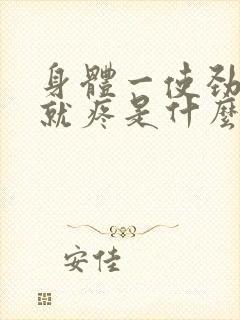 身體一使勁
就疼是什麼
安佳